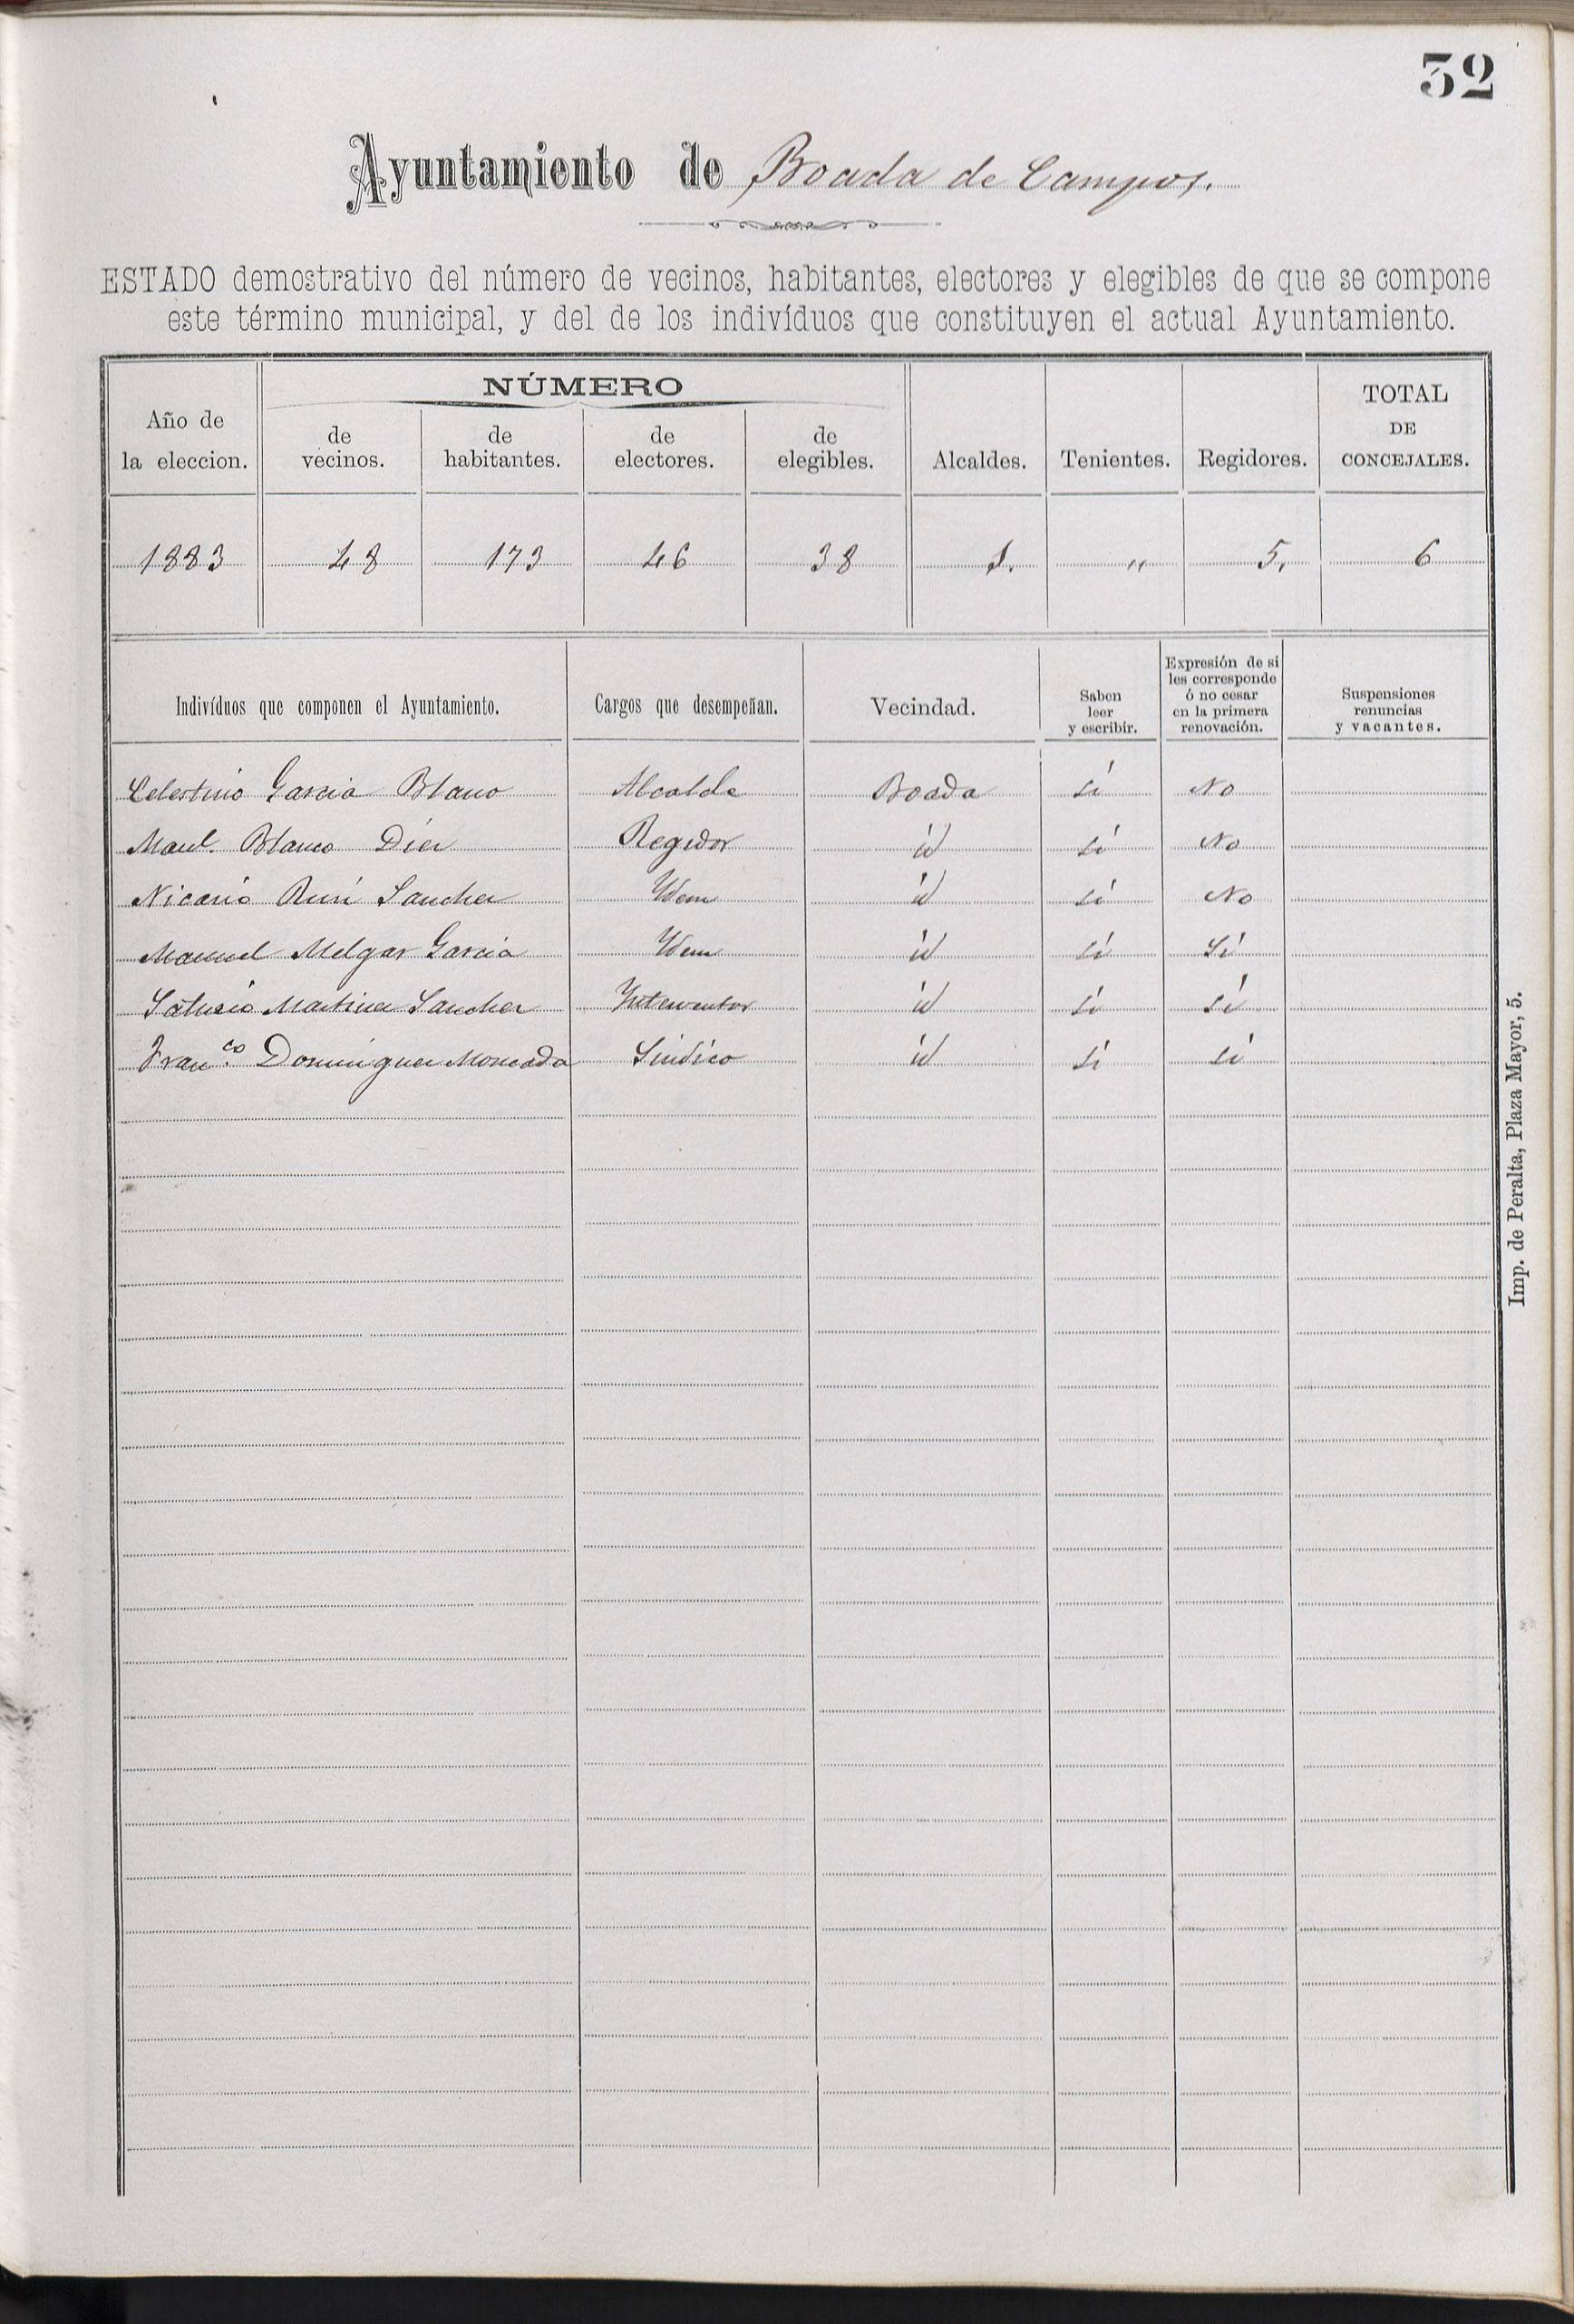 32
Ayuntamiento de Boada de Campos.
ESTADO demostrativo del número de vecinos, habitantes, electores y elegibles de que se compone
este término municipal, y del de los indivíduos que constituyen el actual Ayuntamiento.
Año de la eleccion.
NÚMERO
de vecinos.
de habitantes.
de electores.
de elegibles.
Alcaldes.
Tenientes.
Regidores.
TOTAL DE CONCEJALES.
1883 48 173 46 38 1. " 5. 6
Indivíduos que componen el Ayuntamiento.
Cargos que desempeñan.
Vecindad.
Saben leer y escribir.
Expresión de si les corresponde ó no cesar en la primera renovación.
Suspensiones renuncias y vacantes.
Celestino Garcia Blanco Alcalde Boada sí No
Manl. Blanco Diez Regidor id sí No
Nicasio Sanchez Idem id sí No
Manuel Melgar Garcia Idem id sí Sí
Martinez Sanchez Interventor id sí sí
Franco. Dominguez Moncada Sindico id sí sí
Imp. de Peralta, Plaza Mayor, 5.